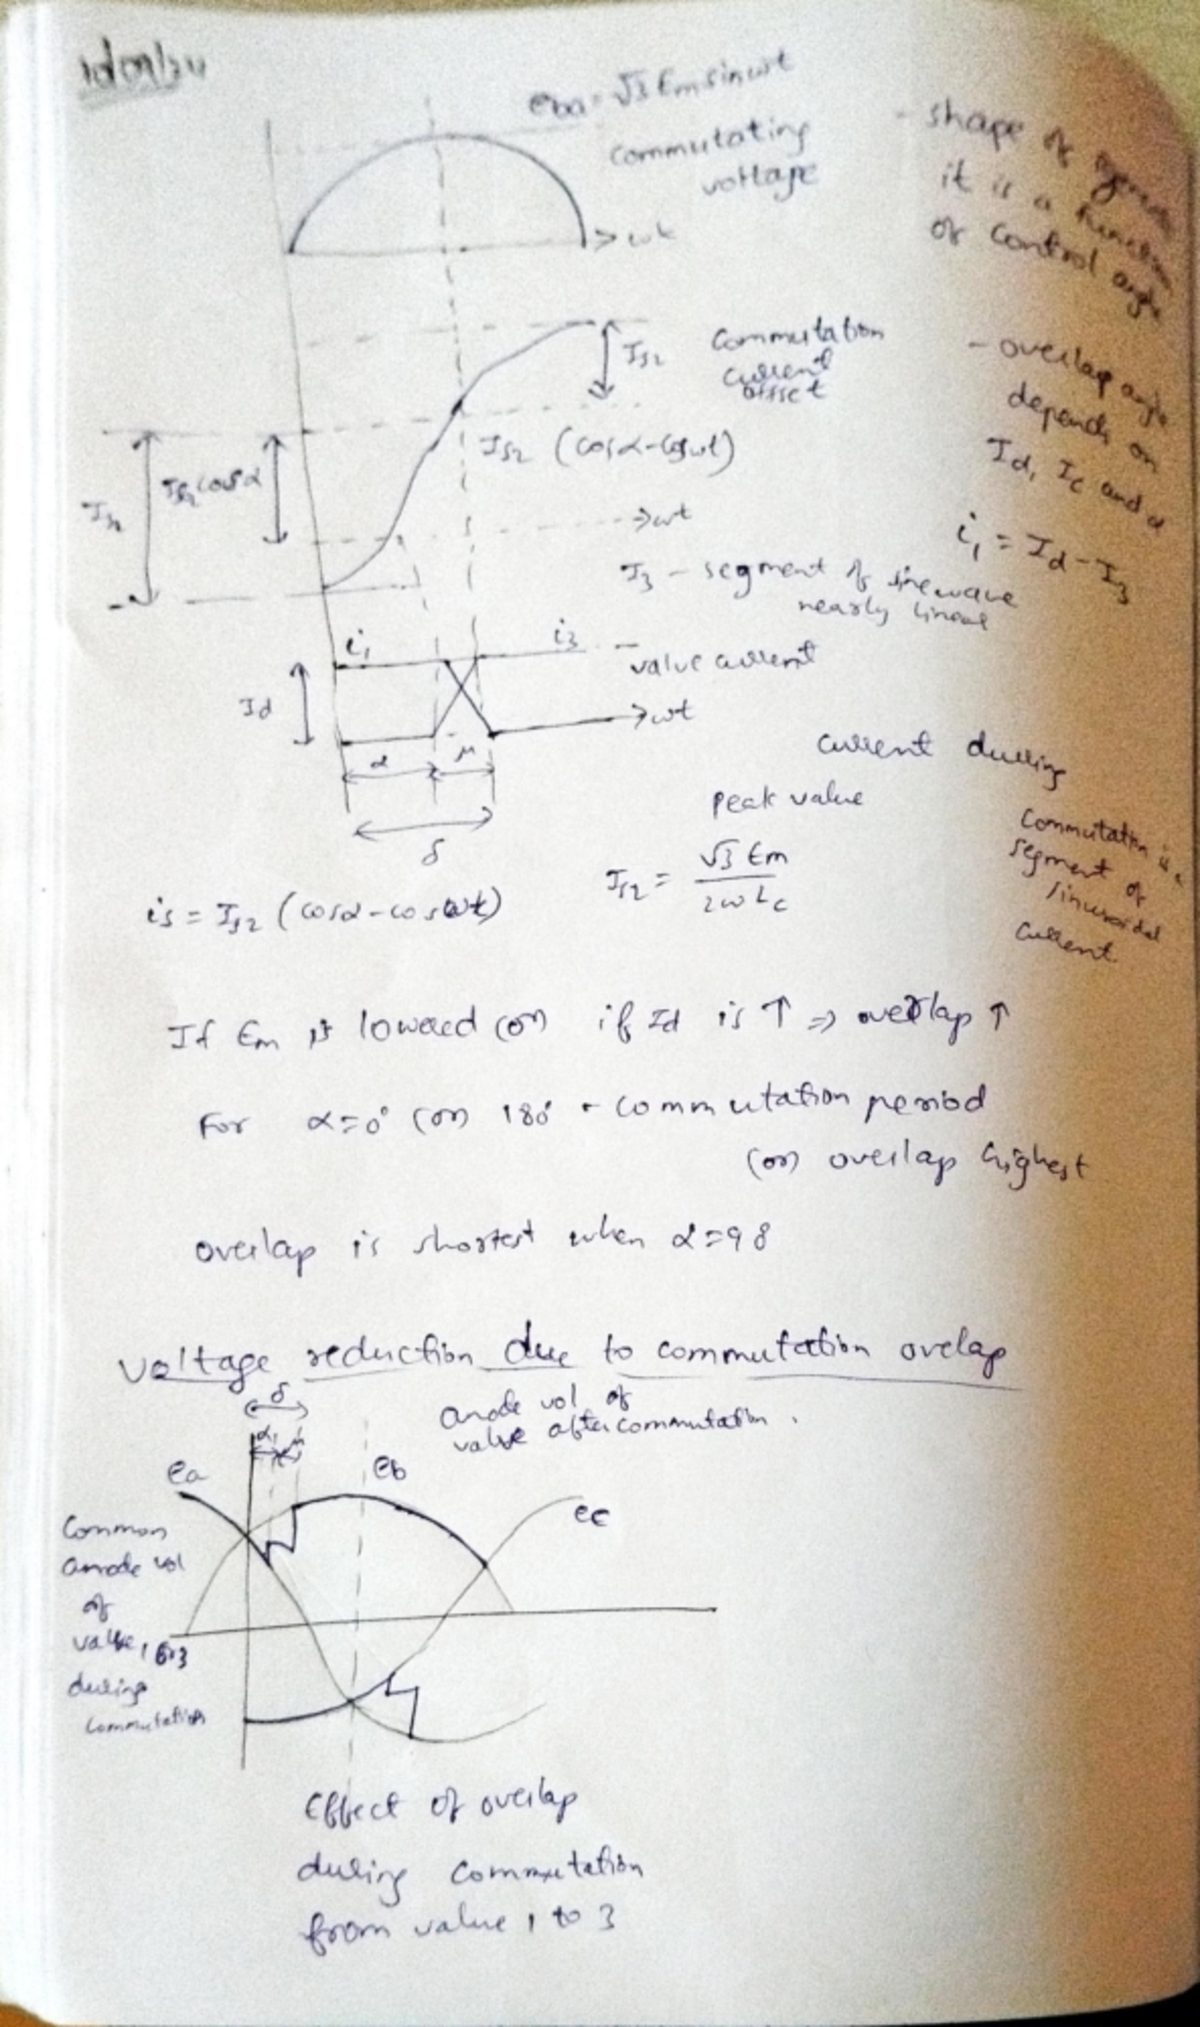 eba = √3 Em sin wt
commutating
voltage
→ wt
- shape of
it is a function
of control angle
Is2
Commutation
current
offset
- overlap angle
depends on
Id, Ic and α
Is2 cosα
Is2
Is2 (cosα-coswt)
→wt
i1 = Id - I3
I3 - segment of sinewave
nearly linear
i1
i3
value current
Id
→wt
α
μ
δ
current during
commutation is a
segment of
sinusoidal
current
peak value
Is2 = √3 Em / 2wLc
is = Is2 (cosα-coswt)
If Em is lowered (or) if Id is ↑ ⇒ overlap ↑
For α=0° (or) 180 - commutation period
(or) overlap highest
overlap is shortest when α=90
Voltage reduction due to commutation ovelap
δ
α μ
anode vol of
valve after commutation.
ea
eb
ec
Common
anode vol
of
valve 1 & 3
during
commutation
Effect of overlap
during commutation
from value 1 to 3